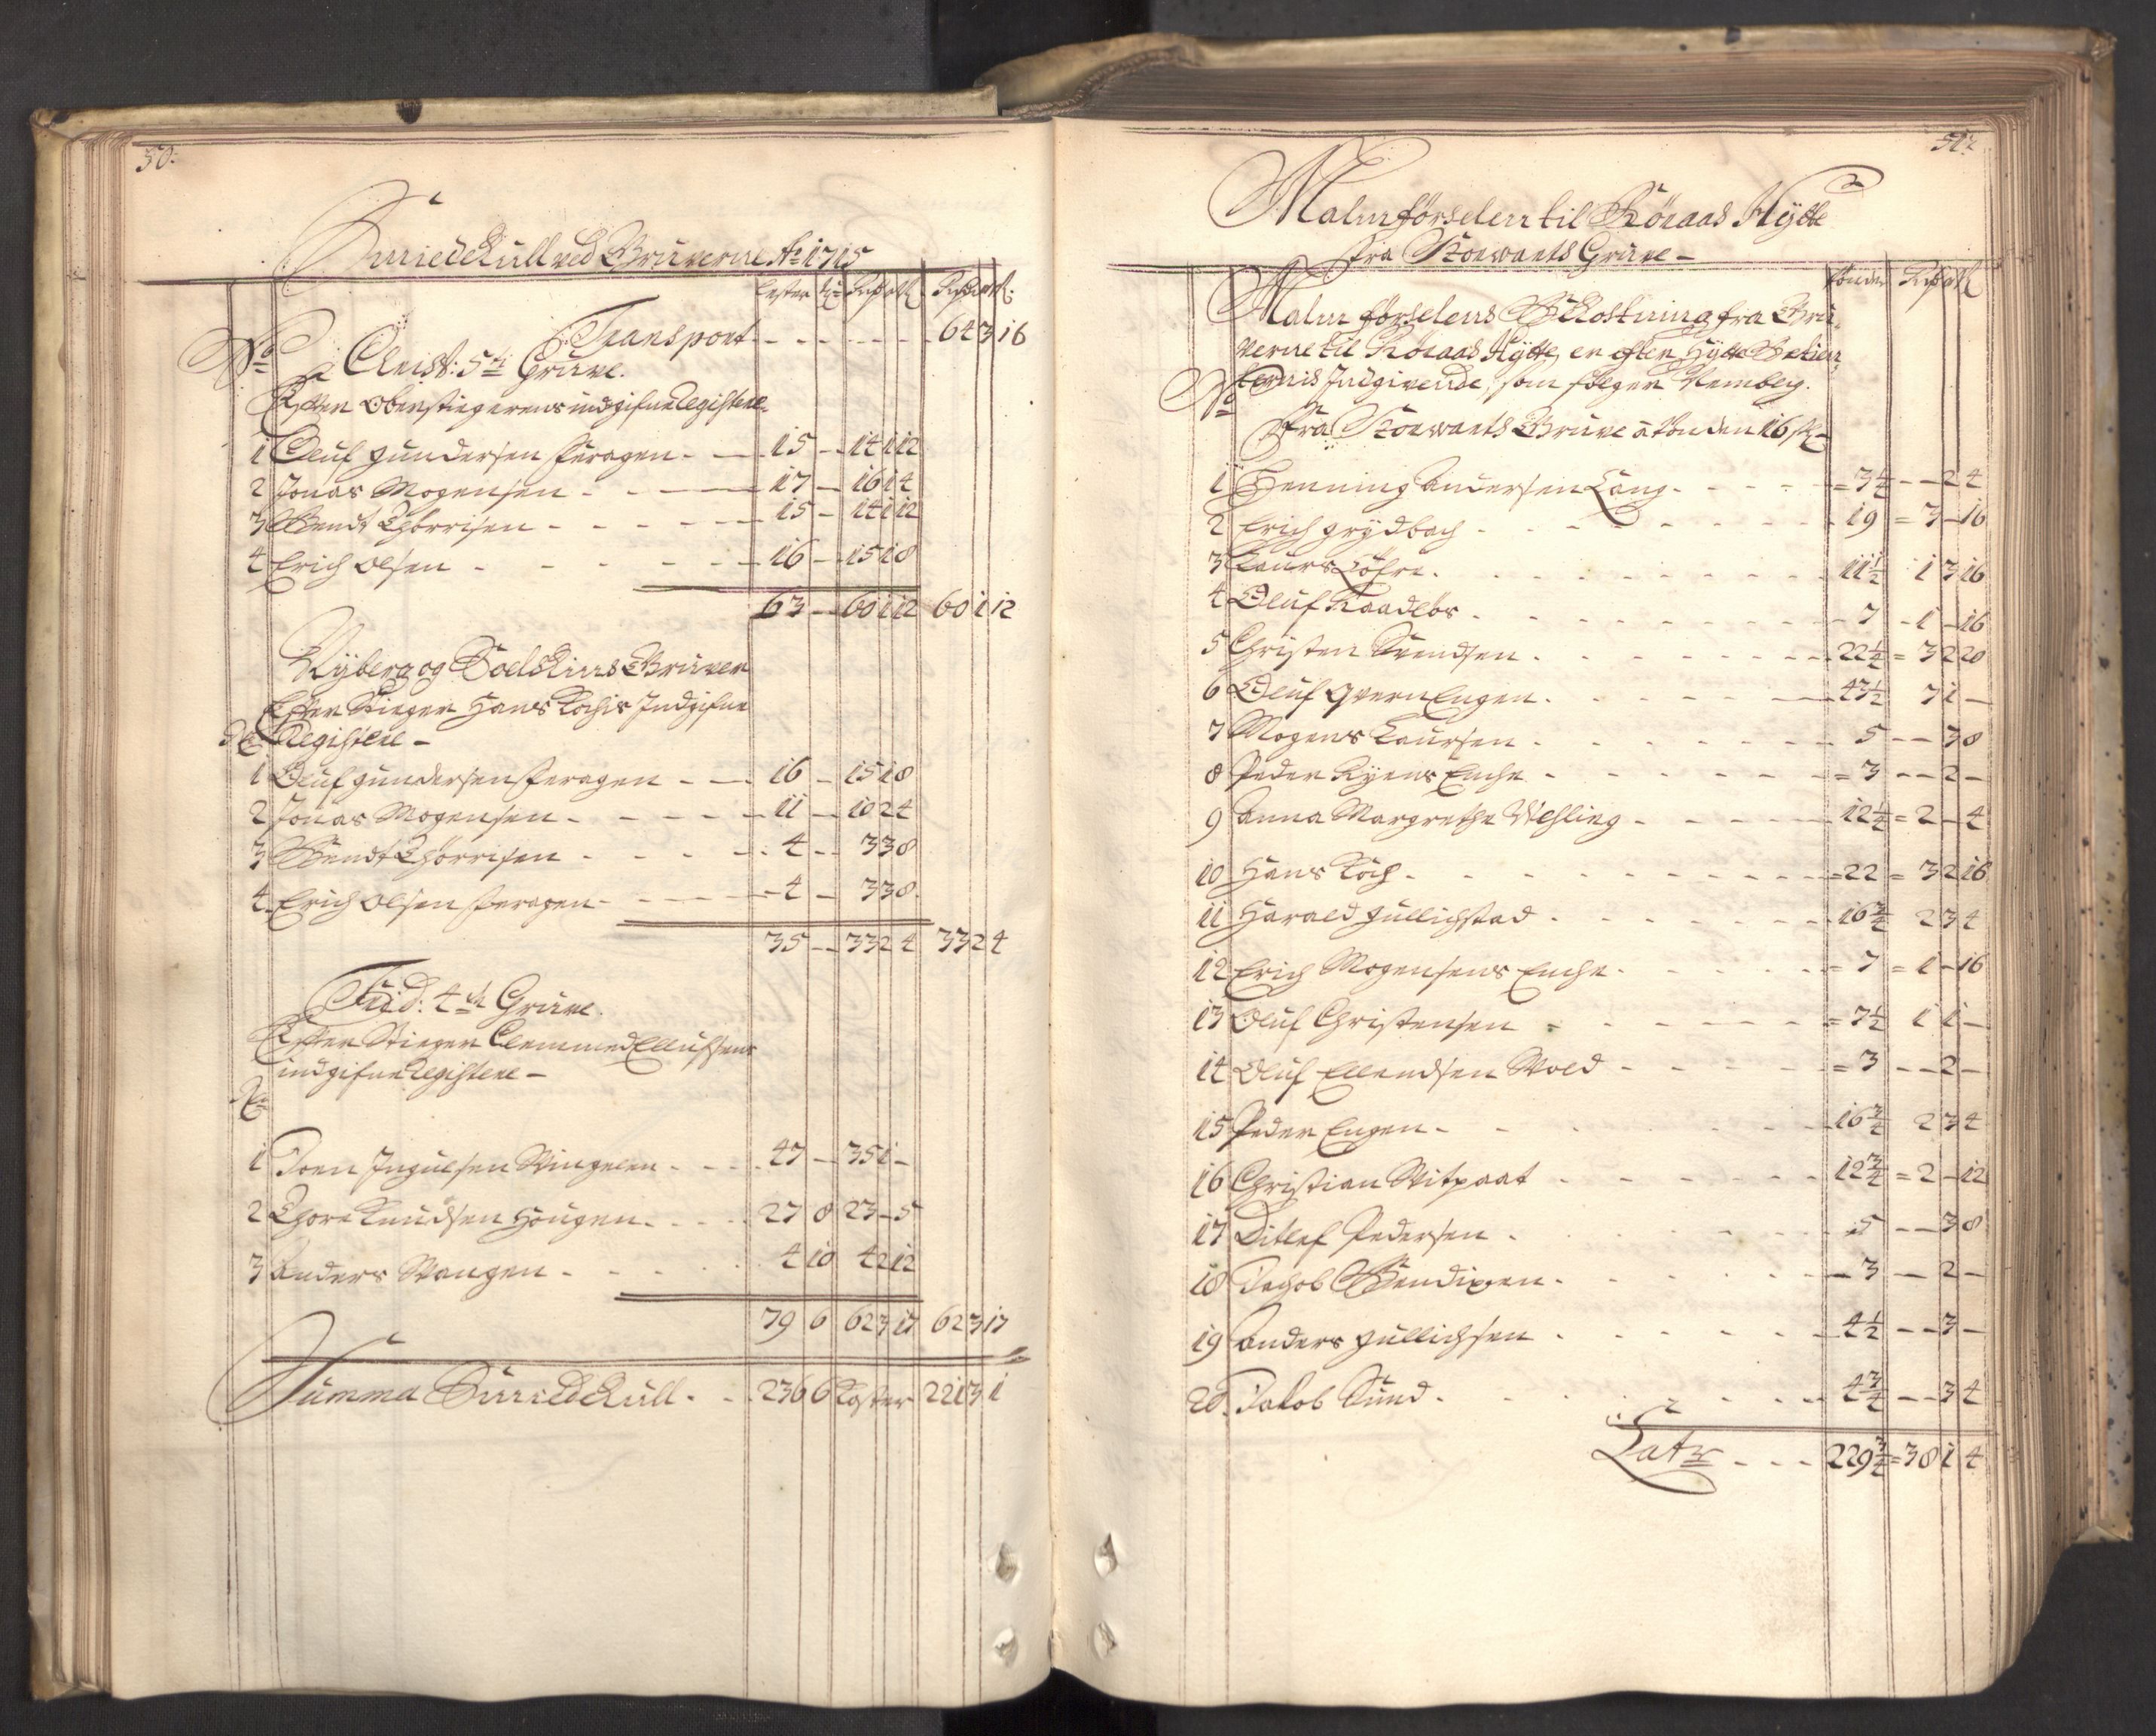 50:
Surredekull ved Gruverne Ao 1715
Lester
Transport - - - - - - - 64 3 16
No
Christ: 5te Gruve.
Efter Oberstigerens indgifne Registere
1 Oluf Gundersen - - 15 - 14 1 12
2 Jonas Mogensen - - 17 - 16 - 14
3 Bendt Thorrisen - - - - - 15 - 14 1 12
4 Erich Olsen - - - - - - 16 - 15 - 18
63 - 60 1 12 60 1 12
Nyberg og Soelskins Gruver
Efter Stiger Hans Kochis Indgifne
No Registere -
1 Oluf Gundersen - - 16 - 15 - 18
2 Jonas Mogensen - - - - - 11 - 10 2 4
3 Bendt Thörrisen - - - - 4 - 3 3 8
4 Erich Olsen - - - - 4 - 3 3 8
35 - 33 2 4 33 2 4
Frid: 4de Gruve.
Efter Stiger Clemmed Ellufsens
indgifne Registere -
No
1 Joen Ingulfsen Vingelen - - - 47 - 35 1 -
2 Thore Knudsen Hougen - - - 27 8 23 - 5
3 Anders Vangen - - - - - 4 10 4 2 12
79 6 62 3 17 62 3 17
Summa Surredekull - - 236 6 Koster 221 3 1
51:
Malmförselen til Röraas Hytte
fra Storwarts Gruve -
Tönder
Malm förselens Bekostning fra Gru-
verne til Röraas Hytte, er efter Hytte Betien-
ternis Indgivende, som fölger Nemblig.
No
Fra Storwarts Gruve à tönden 16 sk -
1 Henning Andersen Lang - - - - = 3 1/4 - - 2 4
2 Erich Grydbach - - - - - - 19 = 3 - 16
3 Laurs Löfre - - - - - - 11 1/2 1 3 16
4 Oluf Raadlös - - - - - - 7 - 1 - 16
5 Christen Svendsen - - - - - 22 1/4 = 3 2 20
6 Oluf Qvern Engen - - - - - 43 1/2 7 1 -
7 Mogens Laursen - - - - - - 5 - - 3 8
8 Peder Kyens Enche - - - - - - = 3 - - 2 -
9 Anna Margrethe Vesling - - - - - 12 1/4 = 2 - 4
10 Hans Koch - - - - - - - = 22 = 3 2 16
11 Harald Gullichstad - - - - - - 16 3/4 2 3 4
12 Erich Mogensens Enche - - - - - = 7 = 1 - 16
13 Oluf Christensen - - - - - - = 7 1/2 1 1 -
14 Oluf Ellendsen Vold - - - - - = 3 - - 2 -
15 Peder Engen - - - - - - - 16 3/4 2 3 4
16 Christian Vitpaat - - - - - - 12 3/4 = 2 - 12
17 Ditlef Pedersen - - - - - - 5 - - 3 8
18 Jachob Bendixen - - - - - - 3 - 2 -
19 Anders Gullichsen - - - - - - 4 1/2 - - 3 -
20 Jakob Sund - - - - - - - 4 3/4 - - 3 4
Latr - - - 229 3/4 = 38 1 4